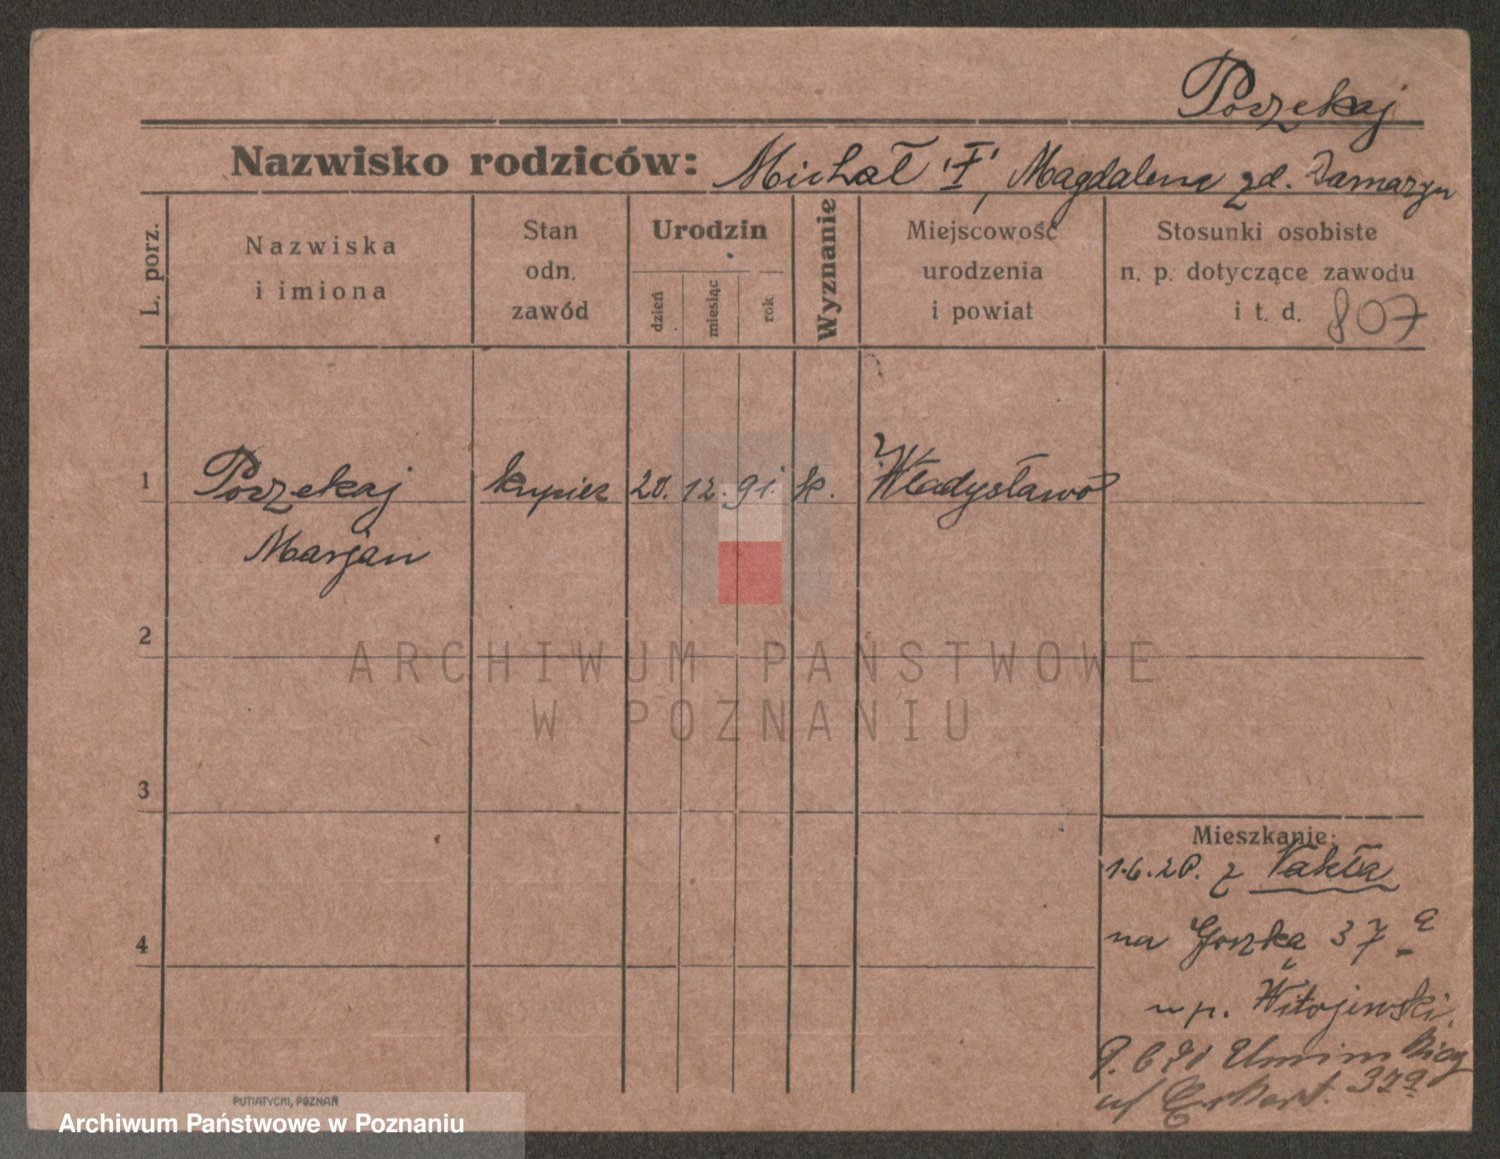 Poszekaj
Nazwisko rodziców: Michał 'F', Magdalena zd.
L. porz.
Nazwiska
i imiona
Stan
odn.
zawód
Urodzin
dzień
miesiąc
rok
Wyznanie
Miejscowość
urodzenia
i powiat
Stosunki osobiste
n. p. dotyczące zawodu
i t. d. 807
1 Poszekaj kupiec 20. 12. 91. k. Władysławó
Marjan
2
ARCHIWUM PAŃSTWOWE
W POZNANIU
3
Mieszkanie:
1.6.20. z
4 na 37 a
u p. Witojewski.
37a
PUTIATYCKI, POZNAŃ
Archiwum Państwowe w Poznaniu